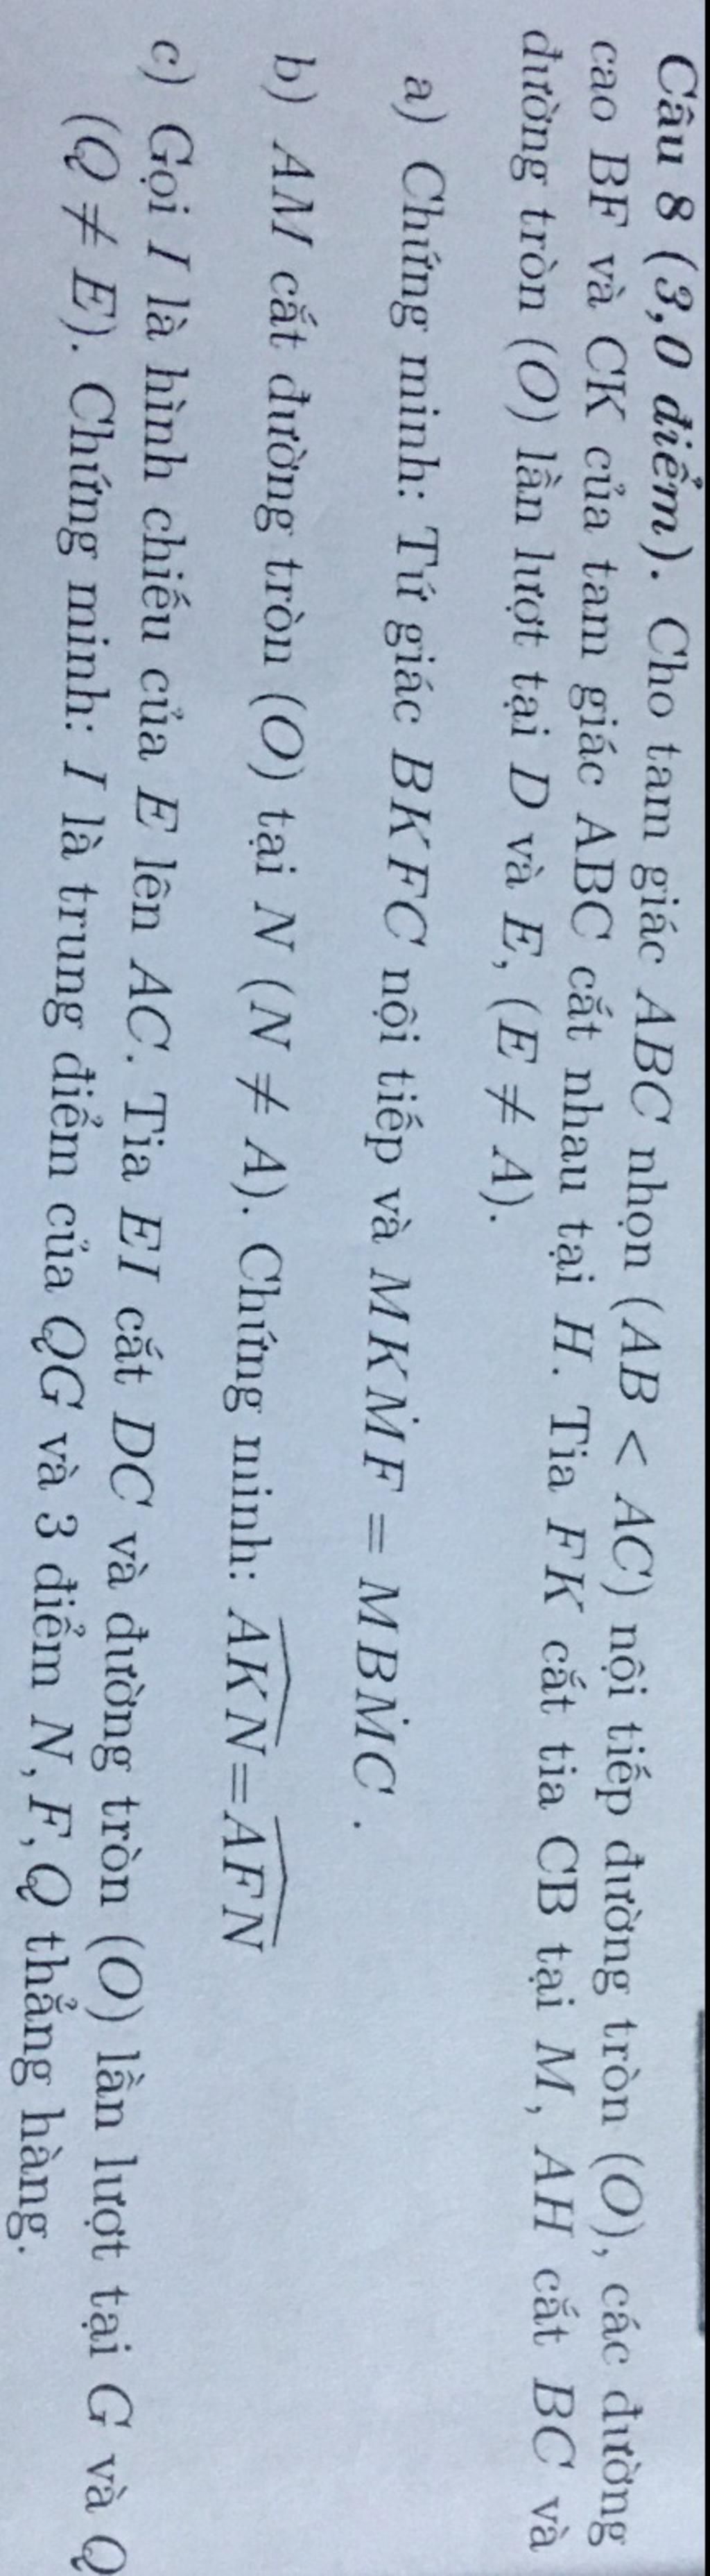 Câu 8 (3,0 điểm). Cho tam giác ABC nhọn (AB < AC) nội tiếp đường tròn (O), các đường
cao BF và CK của tam giác ABC cắt nhau tại H. Tia FK cắt tia CB tại M, AH cắt BC và
đường tròn (O) lần lượt tại D và E, (E ≠ A).
a) Chứng minh: Tứ giác BKFC nội tiếp và MK.MF = MB.MC .
b) AM cắt đường tròn (O) tại N (N ≠ A). Chứng minh: \widehat{AKN}=\widehat{AFN}
c) Gọi I là hình chiếu của E lên AC. Tia EI cắt DC và đường tròn (O) lần lượt tại G và Q
(Q ≠ E). Chứng minh: I là trung điểm của QG và 3 điểm N, F, Q thẳng hàng.